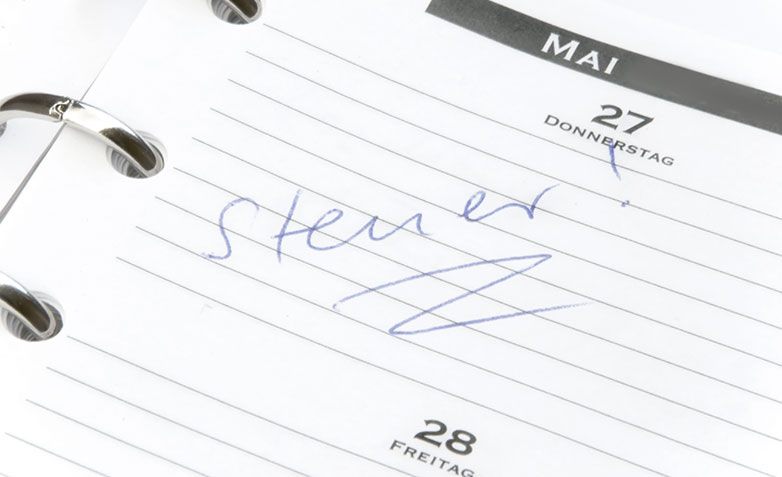 MAI
27
DONNERSTAG
Steuer!
28
FREITAG